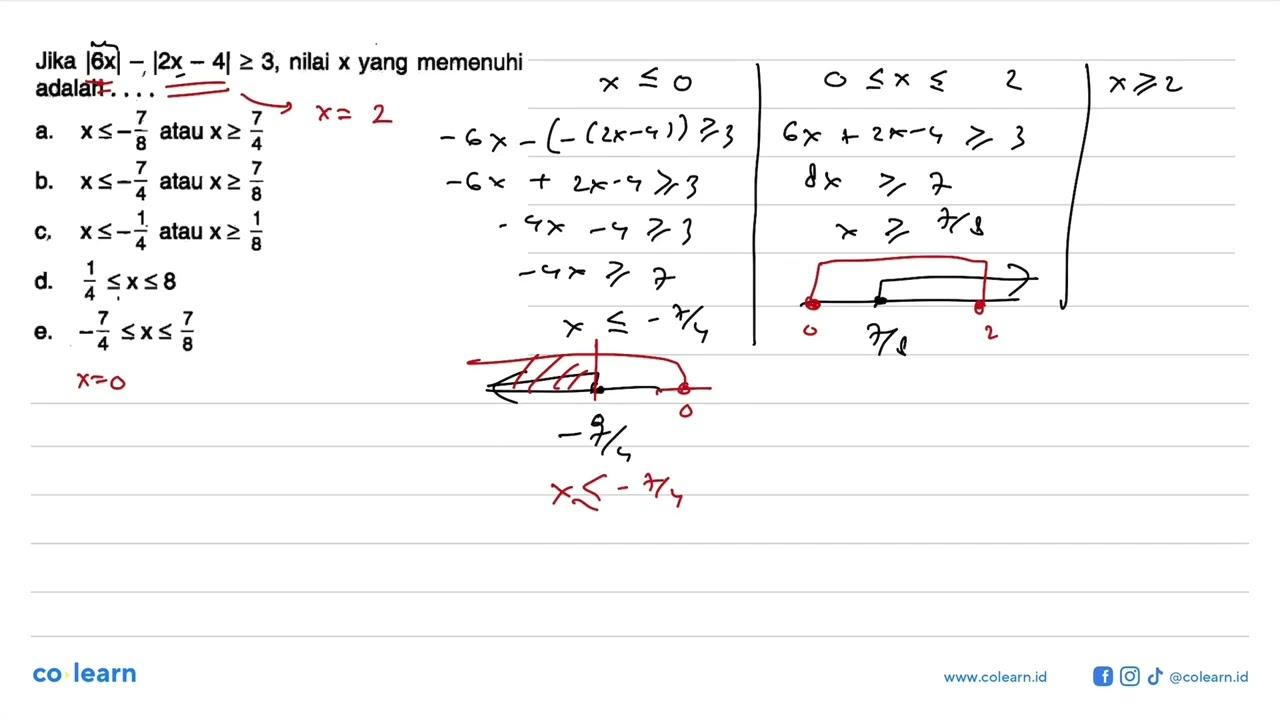 Jika |6x| − |2x − 4| ≥ 3, nilai x yang memenuhi
adalah . . . .
x = 2
a. x ≤ −7/8 atau x ≥ 7/4
b. x ≤ −7/4 atau x ≥ 7/8
c, x ≤ −1/4 atau x ≥ 1/8
d. 1/4 ≤ x ≤ 8
e. −7/4 ≤ x ≤ 7/8
x=0
x ≤ 0
-6x -(-(2x-4)) ≥ 3
-6x + 2x-4 ≥ 3
-4x -4 ≥ 3
-4x ≥ 7
x ≤ -7/4
0
-7/4
x ≤ -7/4
0 ≤ x ≤ 2
6x + 2x-4 ≥ 3
8x ≥ 7
x ≥ 7/8
0 7/8 2
x ≥ 2
co learn
www.colearn.id
@colearn.id